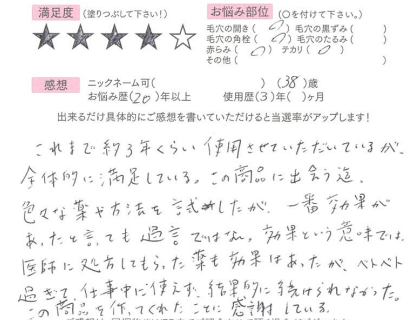 満足度 （塗りつぶして下さい！） お悩み部位 （○を付けて下さい。）
★★★★☆ 毛穴の開き（○）毛穴の黒ずみ（ ）
毛穴の角栓（○）毛穴のたるみ（ ）
赤らみ（○）テカリ（○）
その他（ ）
感想 ニックネーム可（ ）（38）歳
お悩み歴（20）年以上 使用歴（3）年（ ）ヶ月
出来るだけ具体的にご感想を書いていただけると当選率がアップします！
これまで約3年くらい使用させていただいているが、
全体的に満足している。この商品に出会う迄、
色々な薬や方法を試したが、一番効果が
あったと言っても過言ではない。効果という意味では、
医師に処方してもらった薬も効果はあったが、ベトベト
過ぎて仕事中に使えず、結果的に続けられなかった。
この商品を作ってくれたことに感謝している。